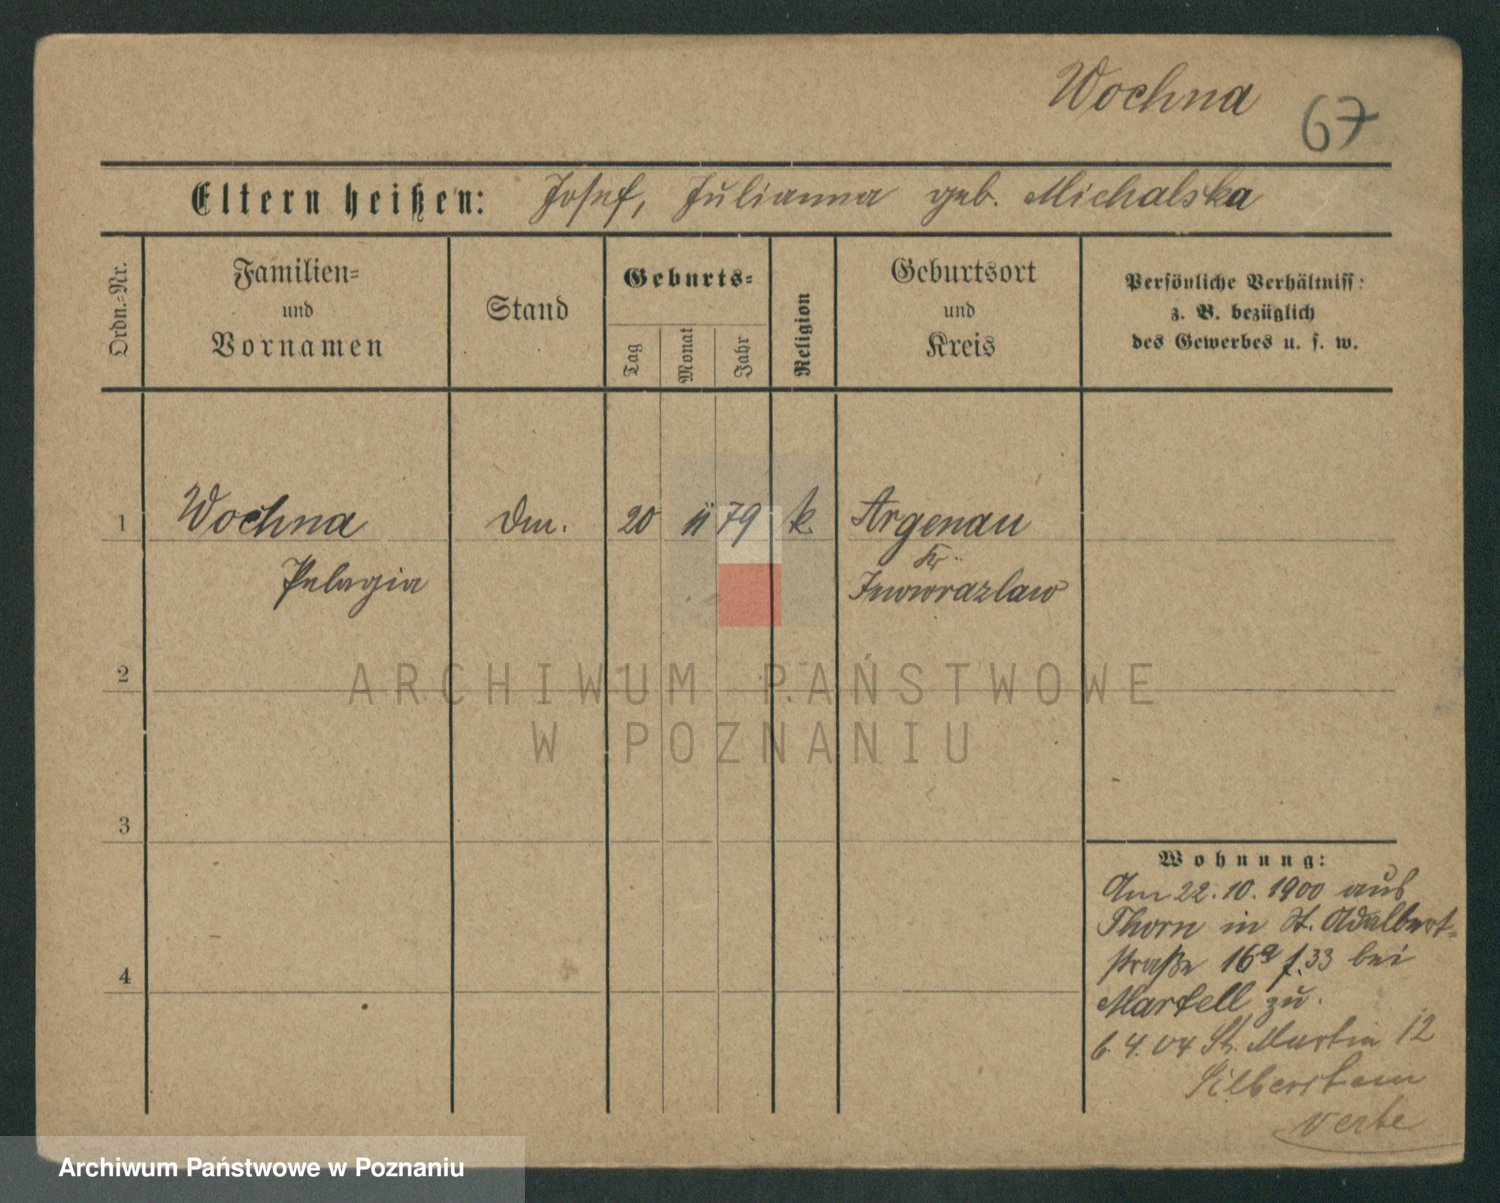 Wochna
67
Eltern heißen: Josef, Julianna geb. Michalska
Ordn.-Nr.
Familien-
und
Vornamen
Stand
Geburts-
Tag
Monat
Jahr
Religion
Geburtsort
und
Kreis
Persönliche Verhältniss:
z. B. bezüglich
des Gewerbes u. s. w.
1 Wochna 20 11 79 k. Argenau
Kr.
Pelagia Inowrazlaw
2
ARCHIWUM PAŃSTWOWE
W POZNANIU
3
Wohnung:
Am 22.10.1900 aus
Thorn in St. Adalbert-
straße 16a f. 33 bei
Martell zu.
6.4.04 St. Martin 12
Silberstein
4
Archiwum Państwowe w Poznaniu